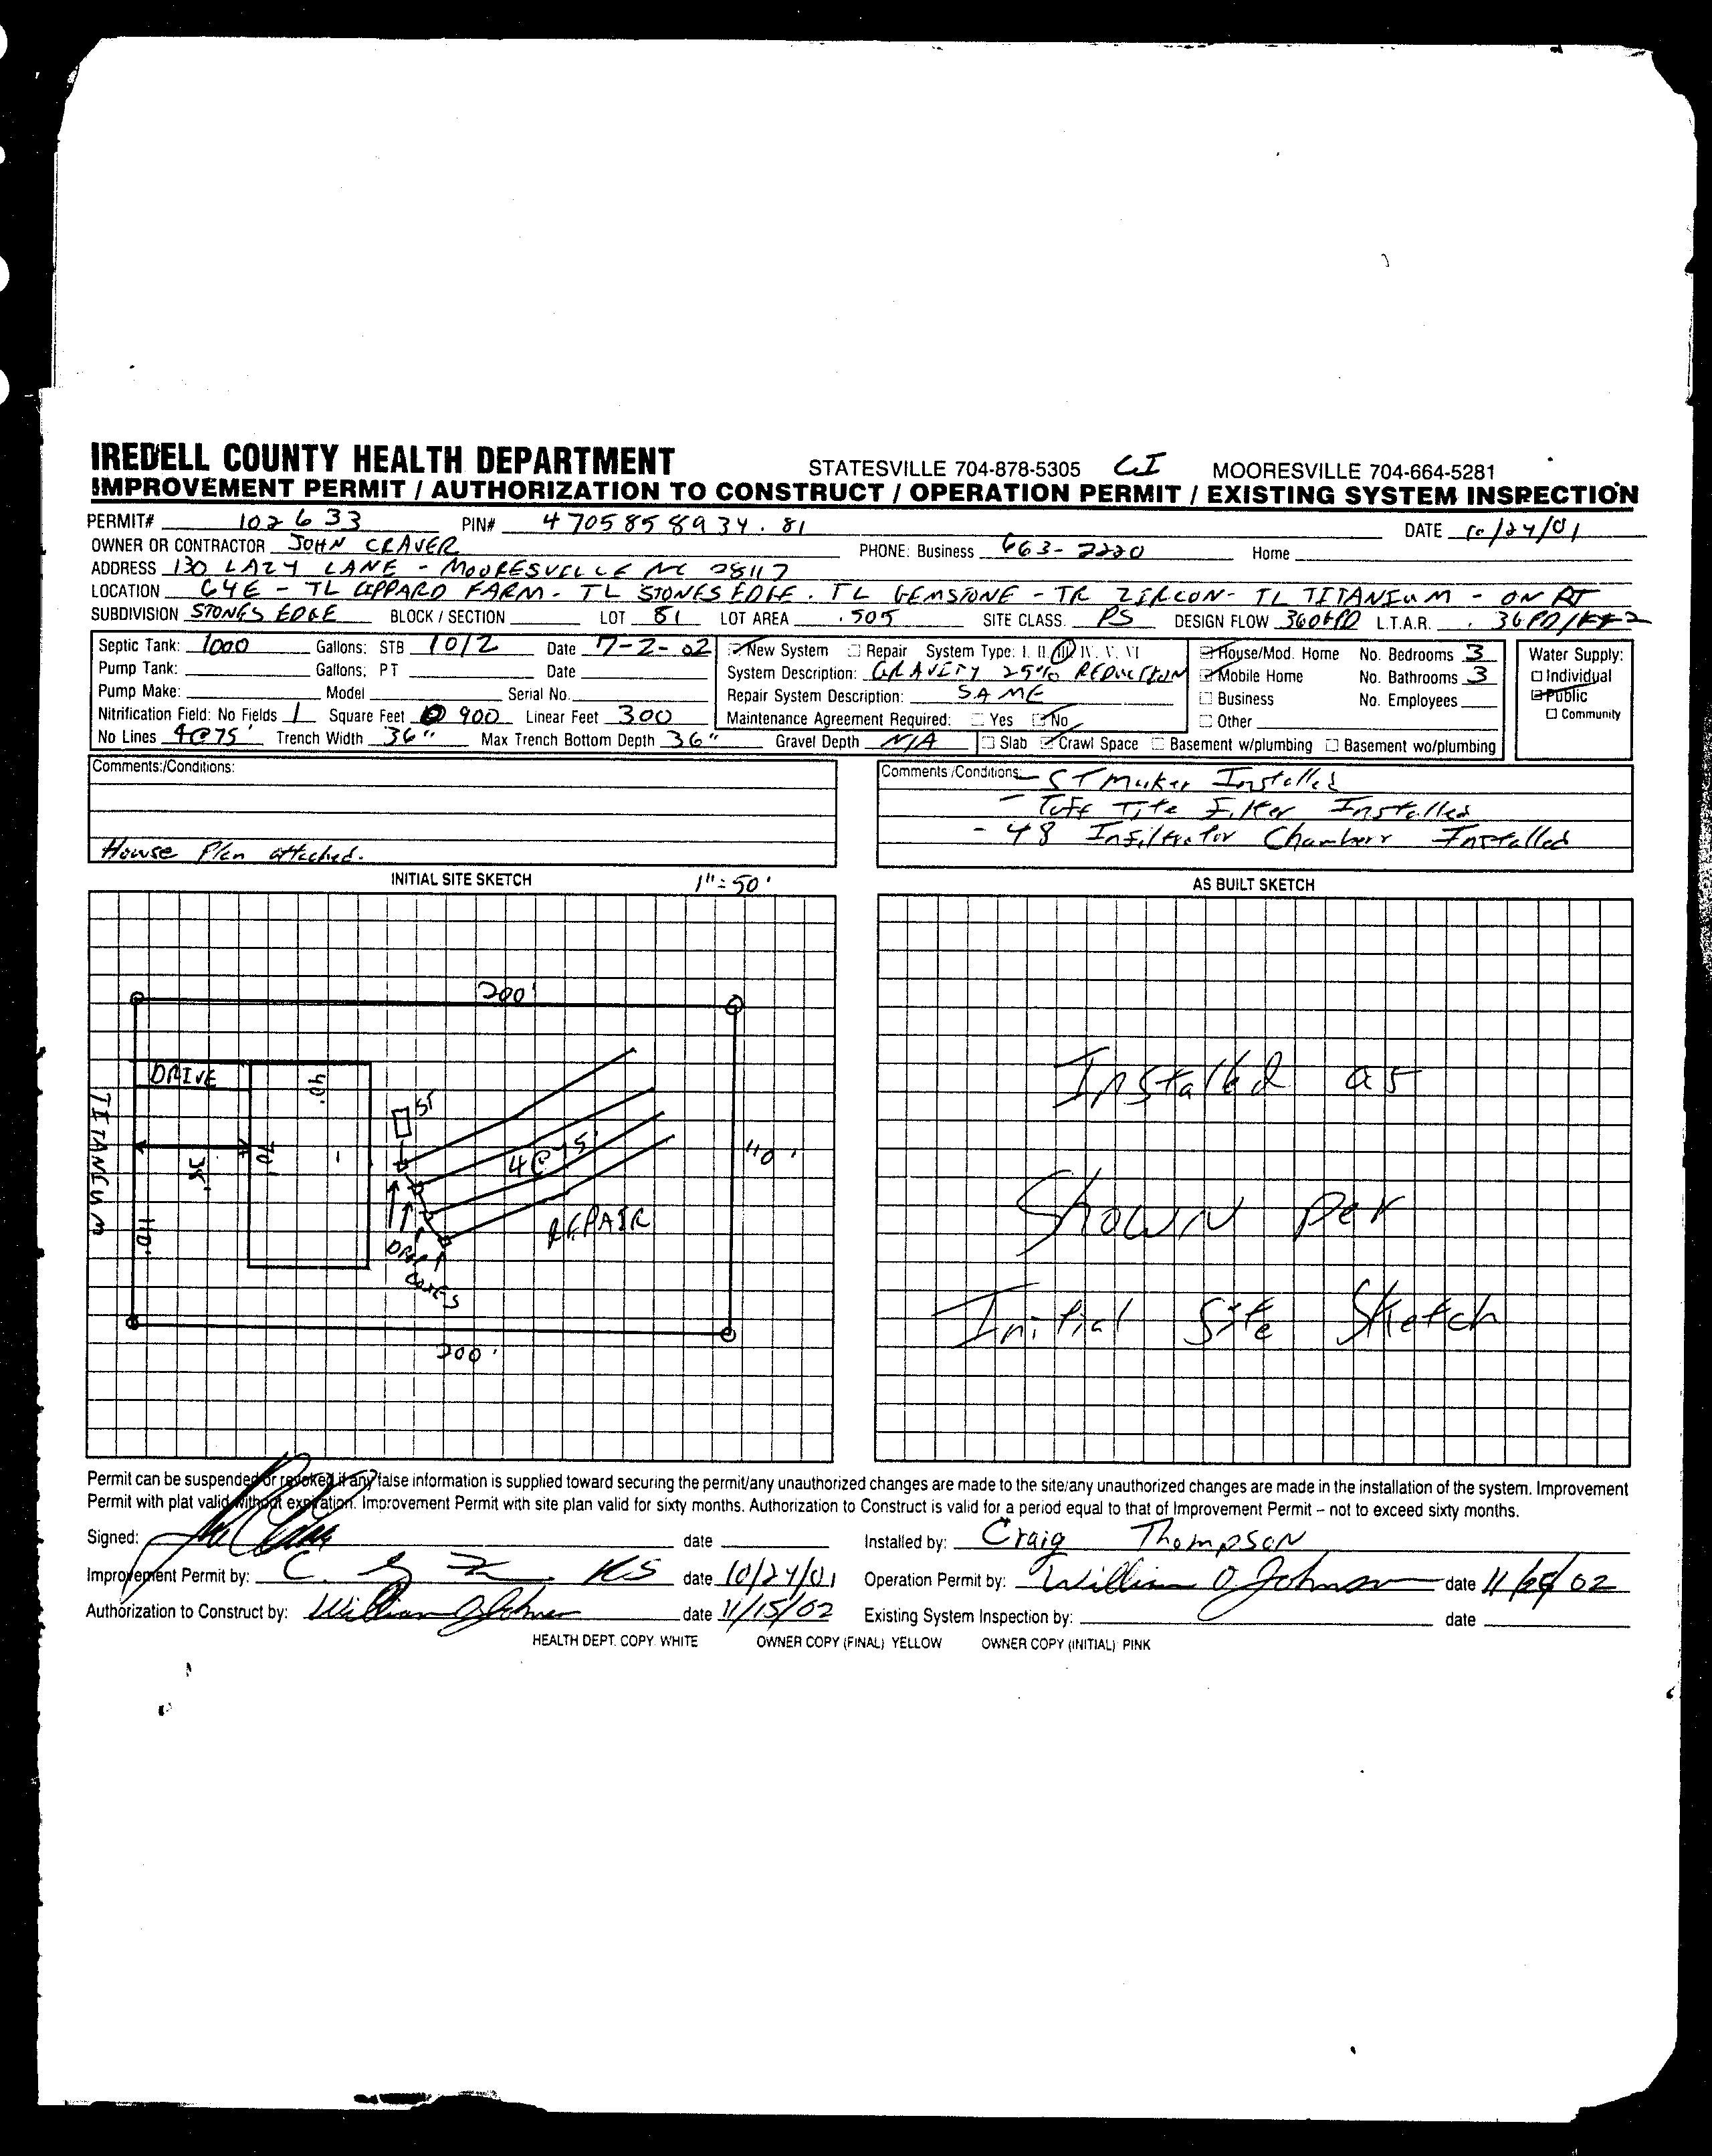 IREDELL COUNTY HEALTH DEPARTMENT STATESVILLE 704-878-5305 CI MOORESVILLE 704-664-5281
IMPROVEMENT PERMIT / AUTHORIZATION TO CONSTRUCT / OPERATION PERMIT / EXISTING SYSTEM INSPECTION
PERMIT# 102633 PIN# 4705858934.81 DATE 10/24/01
OWNER OR CONTRACTOR JOHN CRAVER PHONE: Business 663-2220 Home
ADDRESS 130 LAZY LANE - MOORESVILLE NC 28117
LOCATION 64E - TL CIPPARD FARM - TL STONES EDGE - TL GEMSTONE - TR ZIRCON - TL TITANIUM - ON RT
SUBDIVISION STONES EDGE BLOCK / SECTION LOT 81 LOT AREA .505 SITE CLASS. PS DESIGN FLOW 360GPD L.T.A.R.
Septic Tank: 1000 Gallons: STB 1012 Date 7-2-02 New System Repair System Type: I. II. III. IV. V. VI House/Mod. Home No. Bedrooms 3 Water Supply:
Pump Tank: Gallons; PT Date System Description: GRAVITY 25% REDUCTION Mobile Home No. Bathrooms 3 Individual
Pump Make: Model Serial No. Repair System Description: SAME Business No. Employees Public
Nitrification Field: No Fields 1 Square Feet 900 Linear Feet 300 Maintenance Agreement Required: Yes No Other Community
No Lines 4@75' Trench Width 36" Max Trench Bottom Depth 36" Gravel Depth N/A Slab Crawl Space Basement w/plumbing Basement wo/plumbing
Comments:/Conditions:
House Plan attached.
Comments /Conditions: - ST Marker Installed
- Tuff Tite Filter Installed
- 48 Infiltrator Chambers Installed
INITIAL SITE SKETCH 1"=50'
200'
DRIVE
40'
ST
TITANIUM
35'
70'
4@75'
110'
110'
REPAIR
DROP
BOXES
200'
AS BUILT SKETCH
Installed as
Shown per
Initial Site Sketch
Permit can be suspended or revoked if any false information is supplied toward securing the permit/any unauthorized changes are made to the site/any unauthorized changes are made in the installation of the system. Improvement
Permit with plat valid without expiration. Improvement Permit with site plan valid for sixty months. Authorization to Construct is valid for a period equal to that of Improvement Permit – not to exceed sixty months.
Signed: date Installed by: Craig Thompson
Improvement Permit by: date 10/24/01 Operation Permit by: William O Johnson date 11/ /02
Authorization to Construct by: William O Johnson date 11/15/02 Existing System Inspection by: date
HEALTH DEPT. COPY WHITE OWNER COPY (FINAL) YELLOW OWNER COPY (INITIAL) PINK